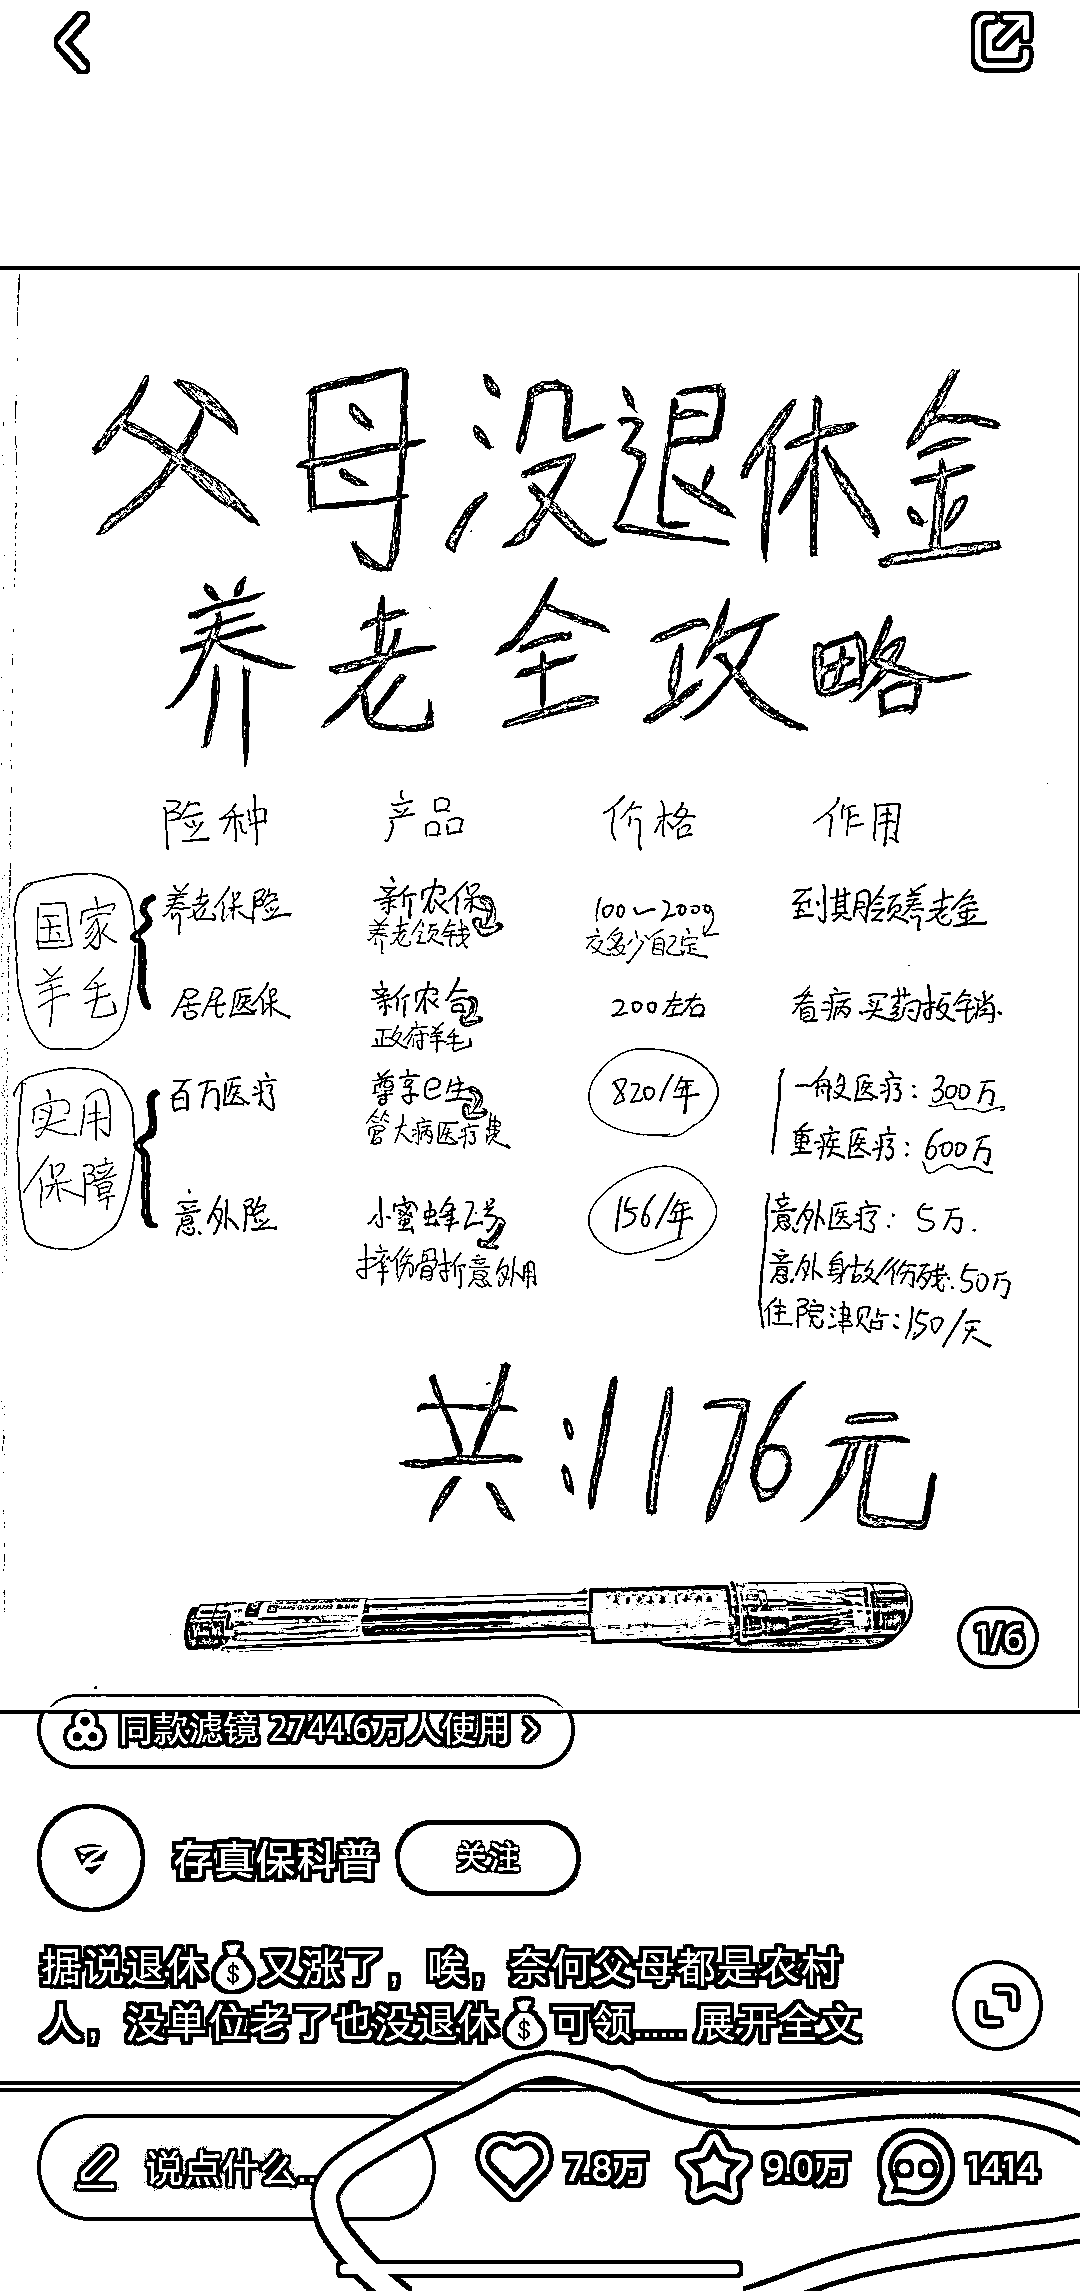 父母没退休金
养老全攻略
险种 产品 价格 作用
国家羊毛
养老保险 新农保 养老领钱 100~200 交多少自己定 到期领养老金
居民医保 新农合 政府羊毛 200左右 看病.买药报销.
实用保障
百万医疗 尊享e生 管大病医疗费 820/年 一般医疗：300万
重疾医疗：600万
意外险 小蜜蜂2号 摔伤骨折意外用 156/年 意外医疗：5万.
意外身故/伤残.50万
住院津贴：150/天
共：1176元
1/6
同款滤镜 2744.6万人使用 >
存真保科普 关注
据说退休💰又涨了，唉，奈何父母都是农村
人，没单位老了也没退休💰可领...... 展开全文
说点什么... 7.8万 9.0万 1414